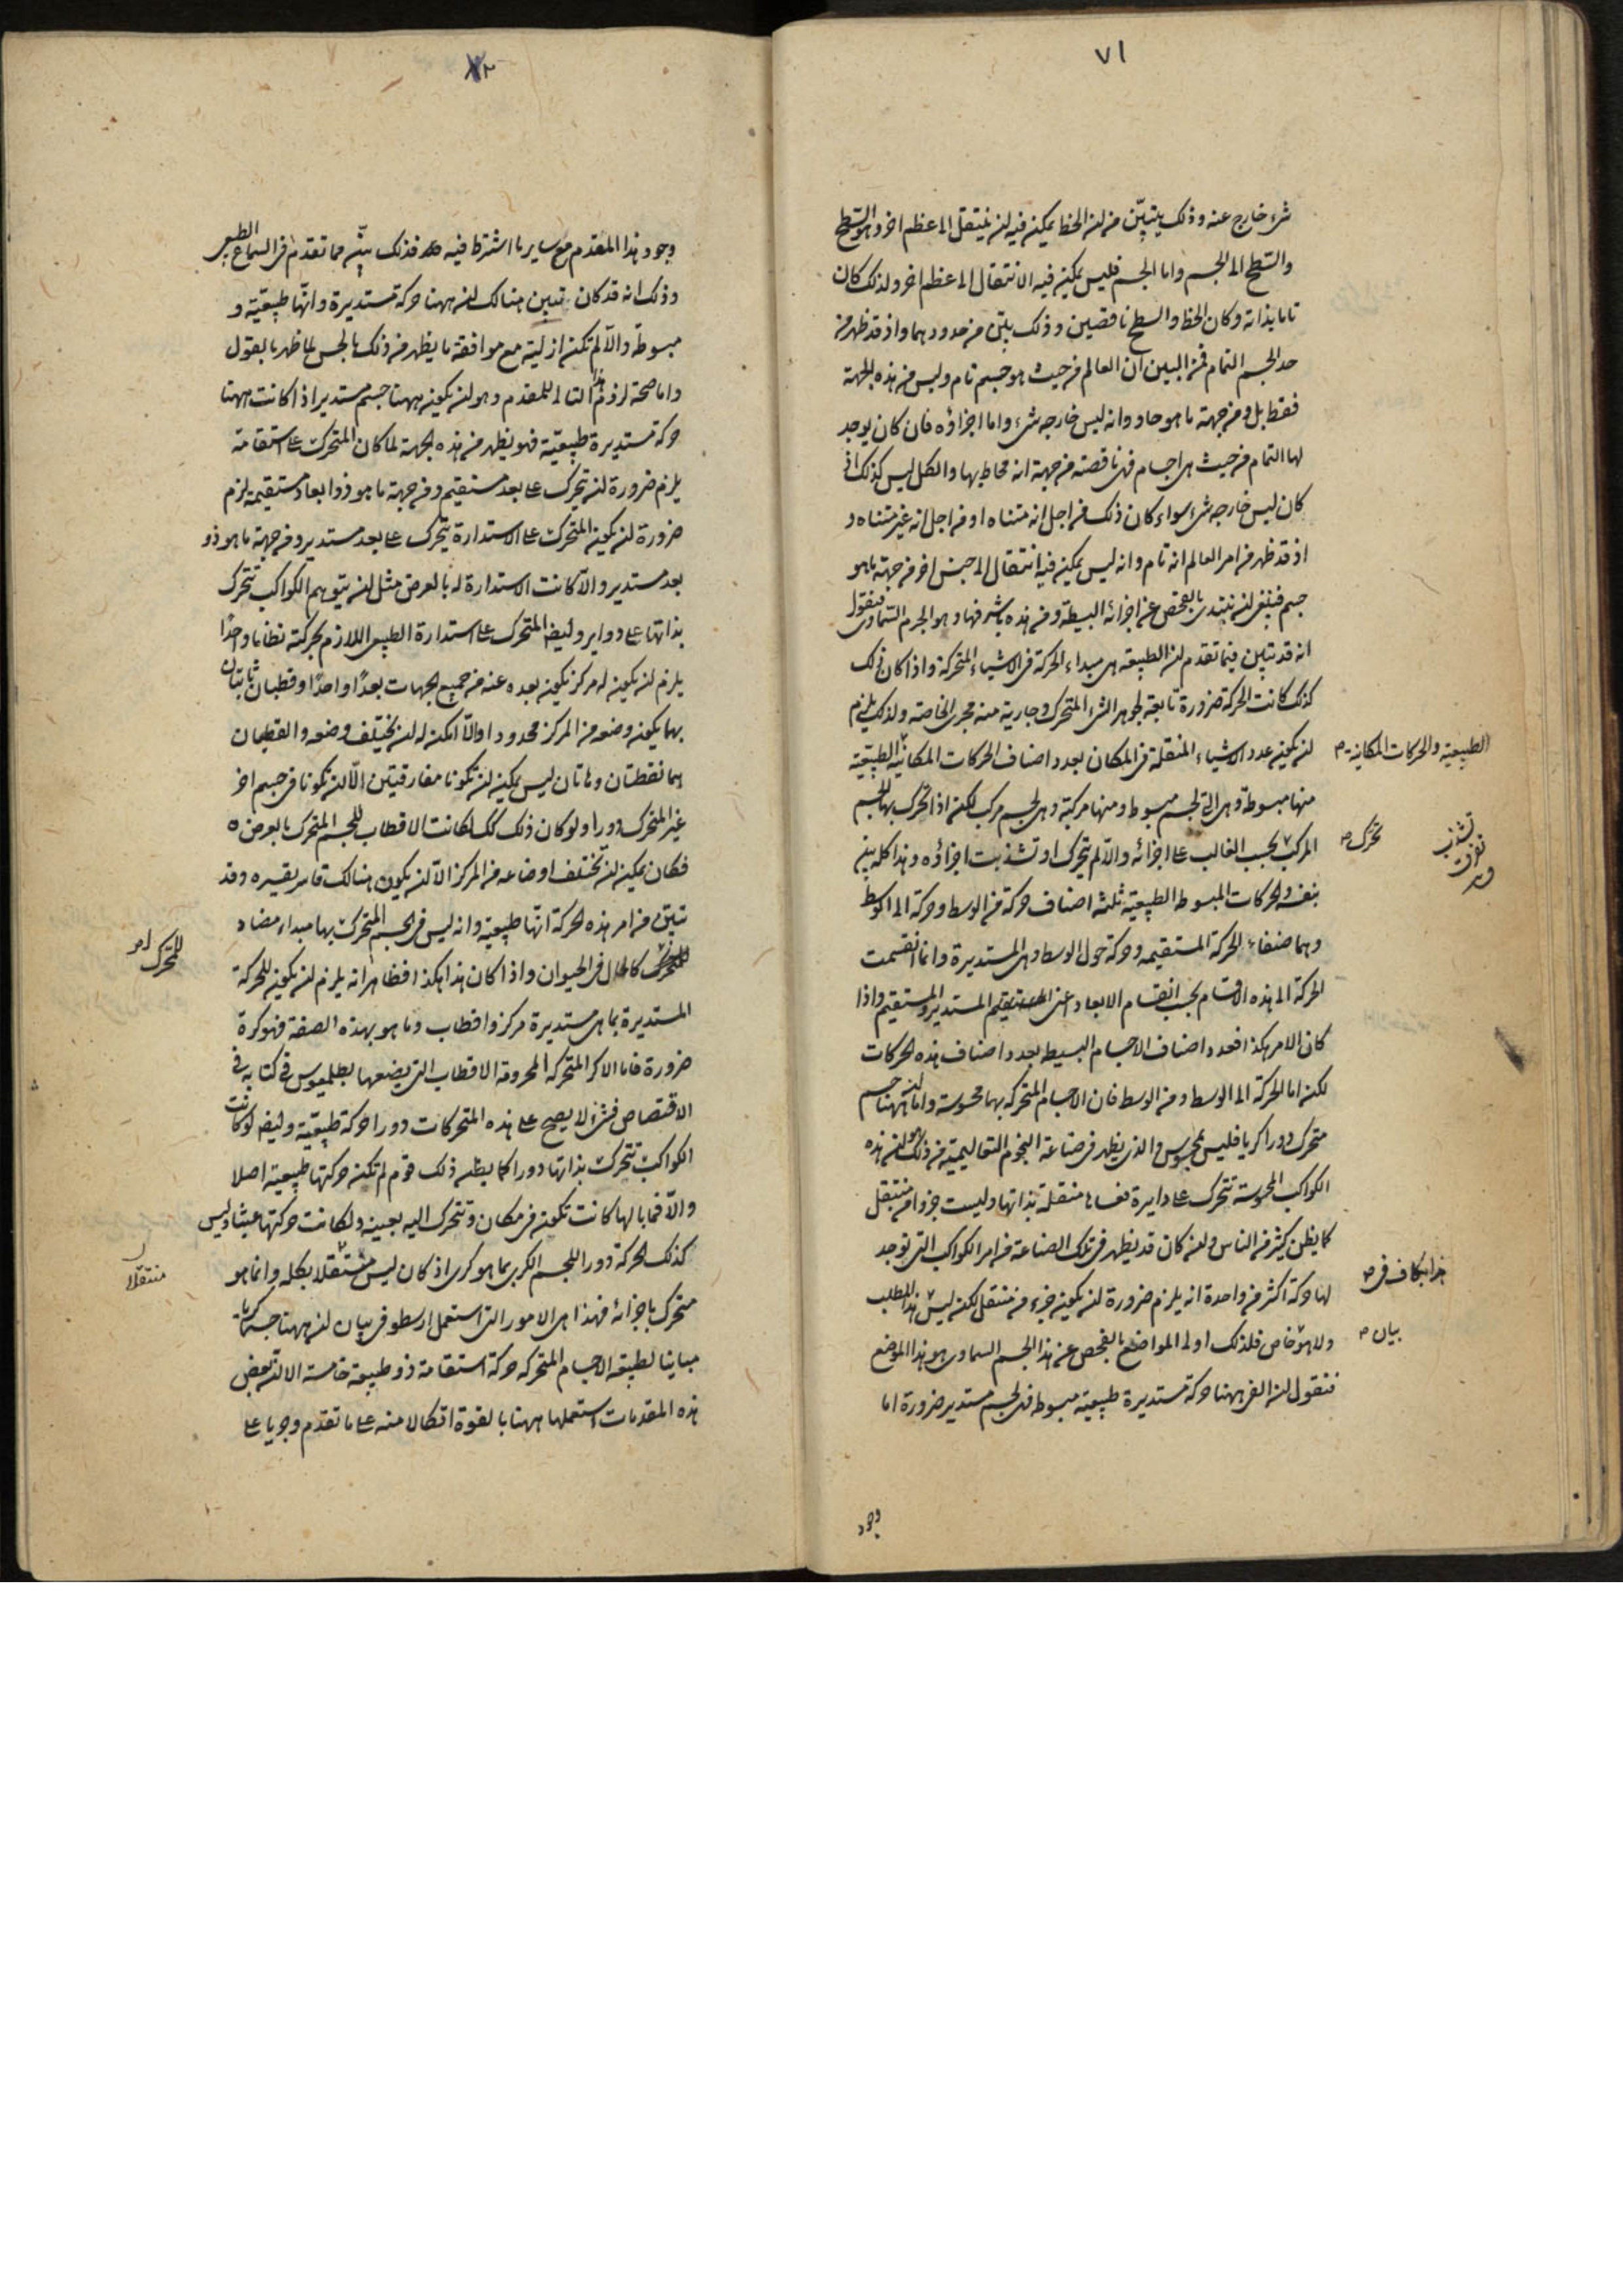 ٧١
شىء خارج عنه وذلك يتبيّن من ان الخط يمكن فيه ان ينتقل الى عظم اخر وهو السّطح
والسّطح الى الجسم واما الجسم فليس يمكن فيه الانتقال الى عظم اخر ولذلك كان
تاما بذاته وكان الخط والسطح ناقصين وذلك بيّن من حدودهما واذ قد ظهر من
حد الجسم التمام فمن البين ان العالم من حيث هو جسم تام وليس من هذه الجهة
فقط بل ومن جهة ما هو حاو وانه ليس خارجه شىء واما اجزاؤه فان كان يوجد
لها التمام من حيث هى اجسام فهى ناقصة من جهة انه محاط بها والكل ليس كذلك اذ
كان ليس خارجه شىء سواء كان ذلك من اجل انه متناه او من اجل انه غير متناه و
اذ قد ظهر من امر العالم انه تام وانه ليس يمكن فيه انتقال الى جنس اخر من جهة ما هو
جسم فينبغى ان نبتدى بالفحص عن اجزائه البسيطة ومن هذه باشرفها وهو الجرم السّماوى فنقول
انه قد تبين فيما تقدم ان الطبيعة هى مبداء الحركة فى الاشياء المتحركة واذا كان ذلك
كذلك كانت الحركة ضرورة تابعة لجوهر الشىء المتحرك وجارية منه مجرى الخاصة ولذلك يلزم
ان يكون عدد الاشياء المنتقلة فى المكان بعدد اصناف الحركات المكانيّة الطبيعيّة
الطبيعية والحركات المكانية م
منها مبسوطة وهى التى لجسم مبسوط ومنها مركبة وهى لجسم مركب لكن اذا تحرك بها الجسم
المركب بحسب الغالب على اجزائه والّا لم يتحرك او تشذبت اجزاؤه وهذا كله بين
تحرك م
تشذب
تفرق
بنفسه والحركات المبسوطة الطبيعية ثلثة اصناف حركة من الوسط وحركة الى الوسط
وهما صنفا الحركة المستقيمه وحركة حول الوسط وهى المستديرة وانما انقسمت
الحركة الى هذه الاقسام بحسب انقسام الابعاد اعنى المستدير والمستقيم واذا
كان الامر هكذا فعدد اصناف الاجسام البسيطه بعدد اصناف هذه الحركات
لكن اما الحركة الى الوسط ومن الوسط فان الاجسام المتحركه بها محسوسة واما ان ههنا جسم
متحرك دورا كريا فليس بمحسوس والذى يظهر فى صناعة النجوم التعاليمية من ذلك هو ان هذه
الكواكب المحسوسة تتحرك على دايرة نفسها منتقلة بذاتها وليست جزوا من منتقل
كما يظن كثير من الناس ولعنه كان قد يظهر فى تلك الصناعة من امر الكواكب التى توجد
لها حركة اكثر من واحدة انه يلزم ضرورة ان يكون جزء من منتقل لكن ليس هذا المطلب
ولا هو خاص فلذلك اولى المواضع بالفحص عن هذا الجسم السماوى هو هذا الموضع
بيان م
فنقول ان الفى ههنا حركة مستديرة طبيعية مبسوطه فهى لجسم مستدير ضرورة اما
وجود
٧٢
وجود هذا المقدم مع ساير ما اشترط فيه فذلك بيّن مما تقدم فى السماع الطبيعى
وذلك انه قد كان تبين هنالك ان ههنا حركة مستديرة وانّها طبيعيّة و
مبسوطة والّا لم تكن ازلية مع موافقة ما يظهر من ذلك بالحس لما ظهر بالقول
واما صحة لزوم هذا التالى للمقدم وهو ان يكون ههنا جسم مستدير اذا كانت ههنا
حركة مستديرة طبيعيّة فهو يظهر من هذه الجهة لما كان المتحرك على استقامة
يلزم ضرورة ان يتحرك على بعد مستقيم ومن جهة ما هو ذو ابعاد مستقيمة لزم
ضرورة ان يكون المتحرك على الاستدارة يتحرك على بعد مستدير ومن جهة ما هو ذو
بعد مستدير والّا كانت الاستدارة له بالعرض مثل ان يتوهم الكواكب تتحرك
بذاتها على دواير وايضا المتحرك على استدارة الطبيعى اللازم لحركته نظاما واحدًا
يلزم ان يكون له مركز يكون بعده عنه من جميع الجهات بعدًا واحدًا وقطبان ثابتان
بهما يكون وضعه من المركز محدودا والّا امكن له ان يختلف وضعه والقطبان
هما نقطتان وهاتان ليس يمكن ان تكونا مفارقيتين الّا ان تكونا فى جسم اخر
غير المتحرك دورا ولو كان ذلك كذلك لكانت الاقطاب للجسم المتحرك بالعرض
فكان يمكن ان تختلف اوضاعه من المركز الّا ان يكون هنالك قاسر يقسره وقد
تبيّن من امر هذه الحركة انّها طبيعية وانه ليس فى الجسم المتحرك بها مبداء مضاد
للمتحرك كالحال فى الحيوان واذا كان هذا هكذا فظاهر انه يلزم ان يكون للحركة
للمحرك
المستديرة بما هى مستديرة مركز واقطاب وما هو بهذه الصفة فهو كرة
ضرورة فاما الاكر المتحركه المخرومة الاقطاب التى يضعها بطلميوس فى كتابه فى
الاقتصاص فشىء لا يصح على هذه المتحركات دورا حركة طبيعيّة وايضا لو كانت
الكواكب تتحرك بذاتها دورا كما يظن ذلك قوم لم تكن حركتها طبيعية اصلا
والّا فما بالها كانت تكون فى مكان وتتحرك اليه بعينه ولكانت حركتها عبثا وليس
كذلك الحركة دورا للجسم الكرى بما هو كرى اذ كان ليس منتقلا بكله وانما هو
منتقلا
متحرك باجزائه فهذا هى الامور التى استعمل ارسطو فى بيان ان ههنا جسما كريا
مباينا لطبيعة الاجسام المتحركه حركة استقامة ذو طبيعة خامسة الا ان بعض
هذه المقدمات استعملها ههنا بالقوة اتكالا منه على ما تقدم وجريا على